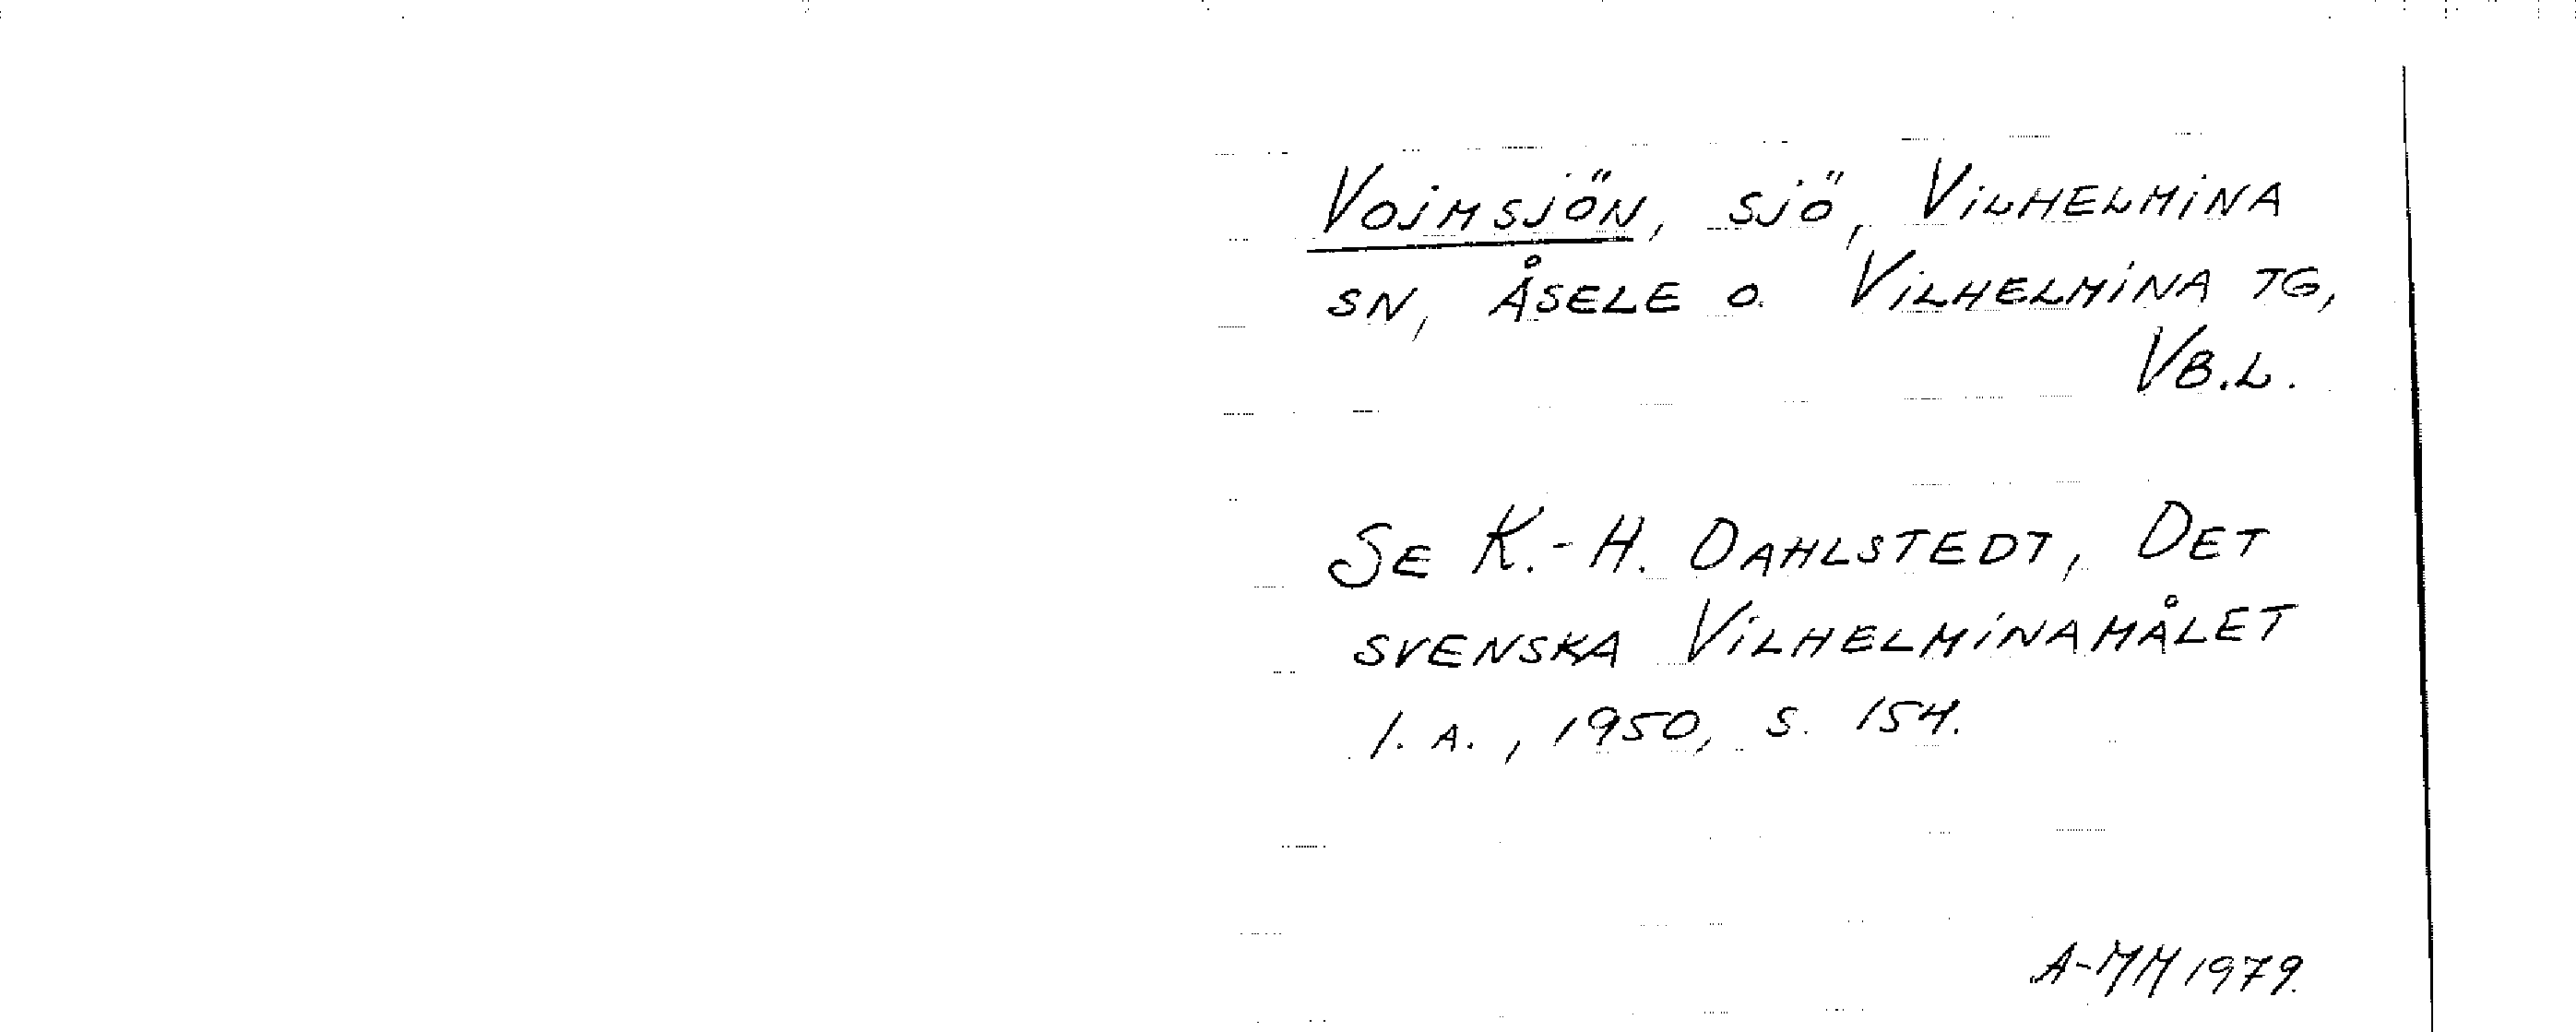 Vojmsjön, sjö, Vilhelmina
sn, Åsele o. Vilhelmina tg,
Vb.l.
Se K.-H. Dahlstedt, Det
svenska Vilhelminamålet
1. A., 1950, s. 154.
A-MM 1979.